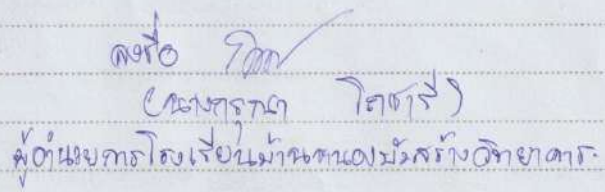 ลงชื่อ
(นางกรุณา โคชารี)
ผู้อำนวยการโรงเรียนบ้านหนองบัวสร้างวิทยาคาร